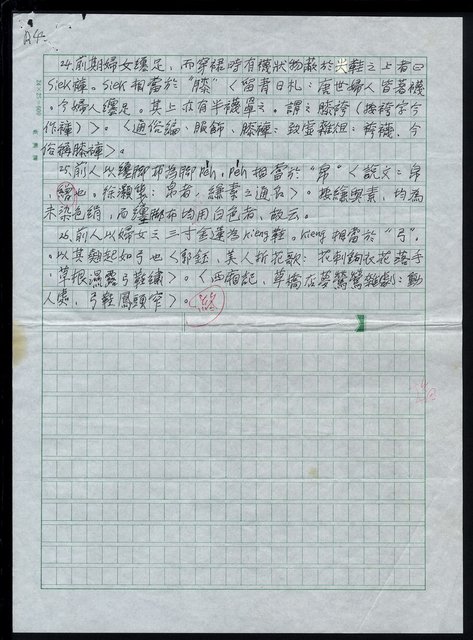 A4
24.前期婦女纏足,而穿裙時有襪狀物蔽於尖鞋之上者曰
siek褲。siek相當於“膝”〈留青日札:唐世婦人皆著襪
。今婦人纏足。其上亦有半襪罩之。謂之膝袴(按袴字今
作褲)〉。〈通俗編、服飾、膝褲:致虛雜俎:袴襪、今
俗稱膝褲〉。
25.前人以纏腳布為腳peh,peh相當於“帛”〈說文:帛
、繒也。徐灝箋:帛者,縑素之通名〉。按縑與素,均為
未染色絹,而纏腳布均用白色者,故云。
26.前人以婦女之三寸金蓮為kieng鞋。kieng相當於“弓”
。以其翹起如弓也〈郭鈺,美人折花歌:花刺鉤衣花落手
,草根濕露弓鞋繡〉。〈西廂記,草橋店夢鶯鶯雜劇:動
人處,弓鞋鳳頭窄〉。終